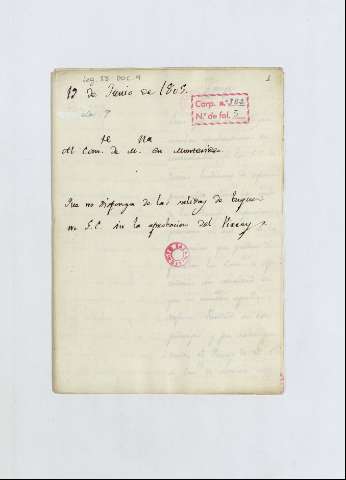 Leg. 33 Doc. 9
1
12 de Junio de 1805.
Carp. n.º 202
N.º de fol. 5
te na
Al Com. de M. en Montevideo
Que no disponga de las salidas de buques
sin la aprobacion del Virrey